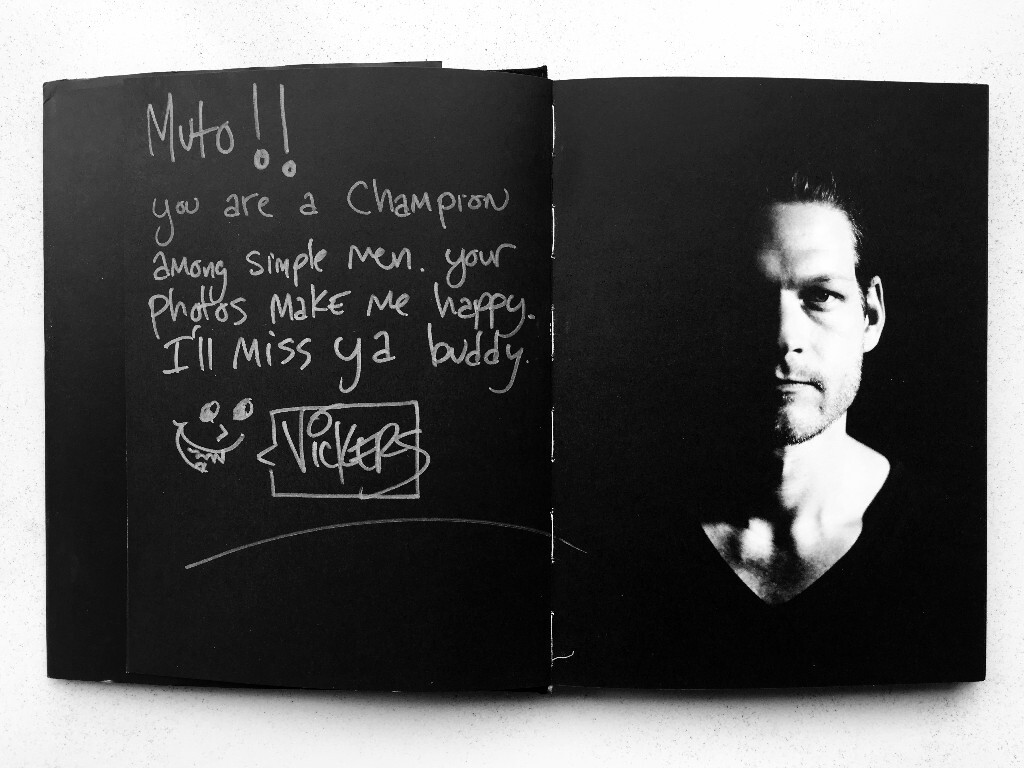 Muto!!
you are a Champion
among simple men. your
photos make me happy.
I'll miss ya buddy.
VICKERS